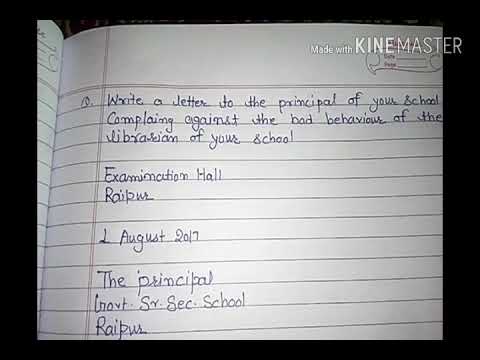 Made with KINEMASTER
Date
Page
Q. Write a letter to the principal of your school
Complaing against the bad behaviour of the
librarian of your school
Examination Hall
Raipur
1 August 2017
The principal
Govt. Sr. Sec. School
Raipur